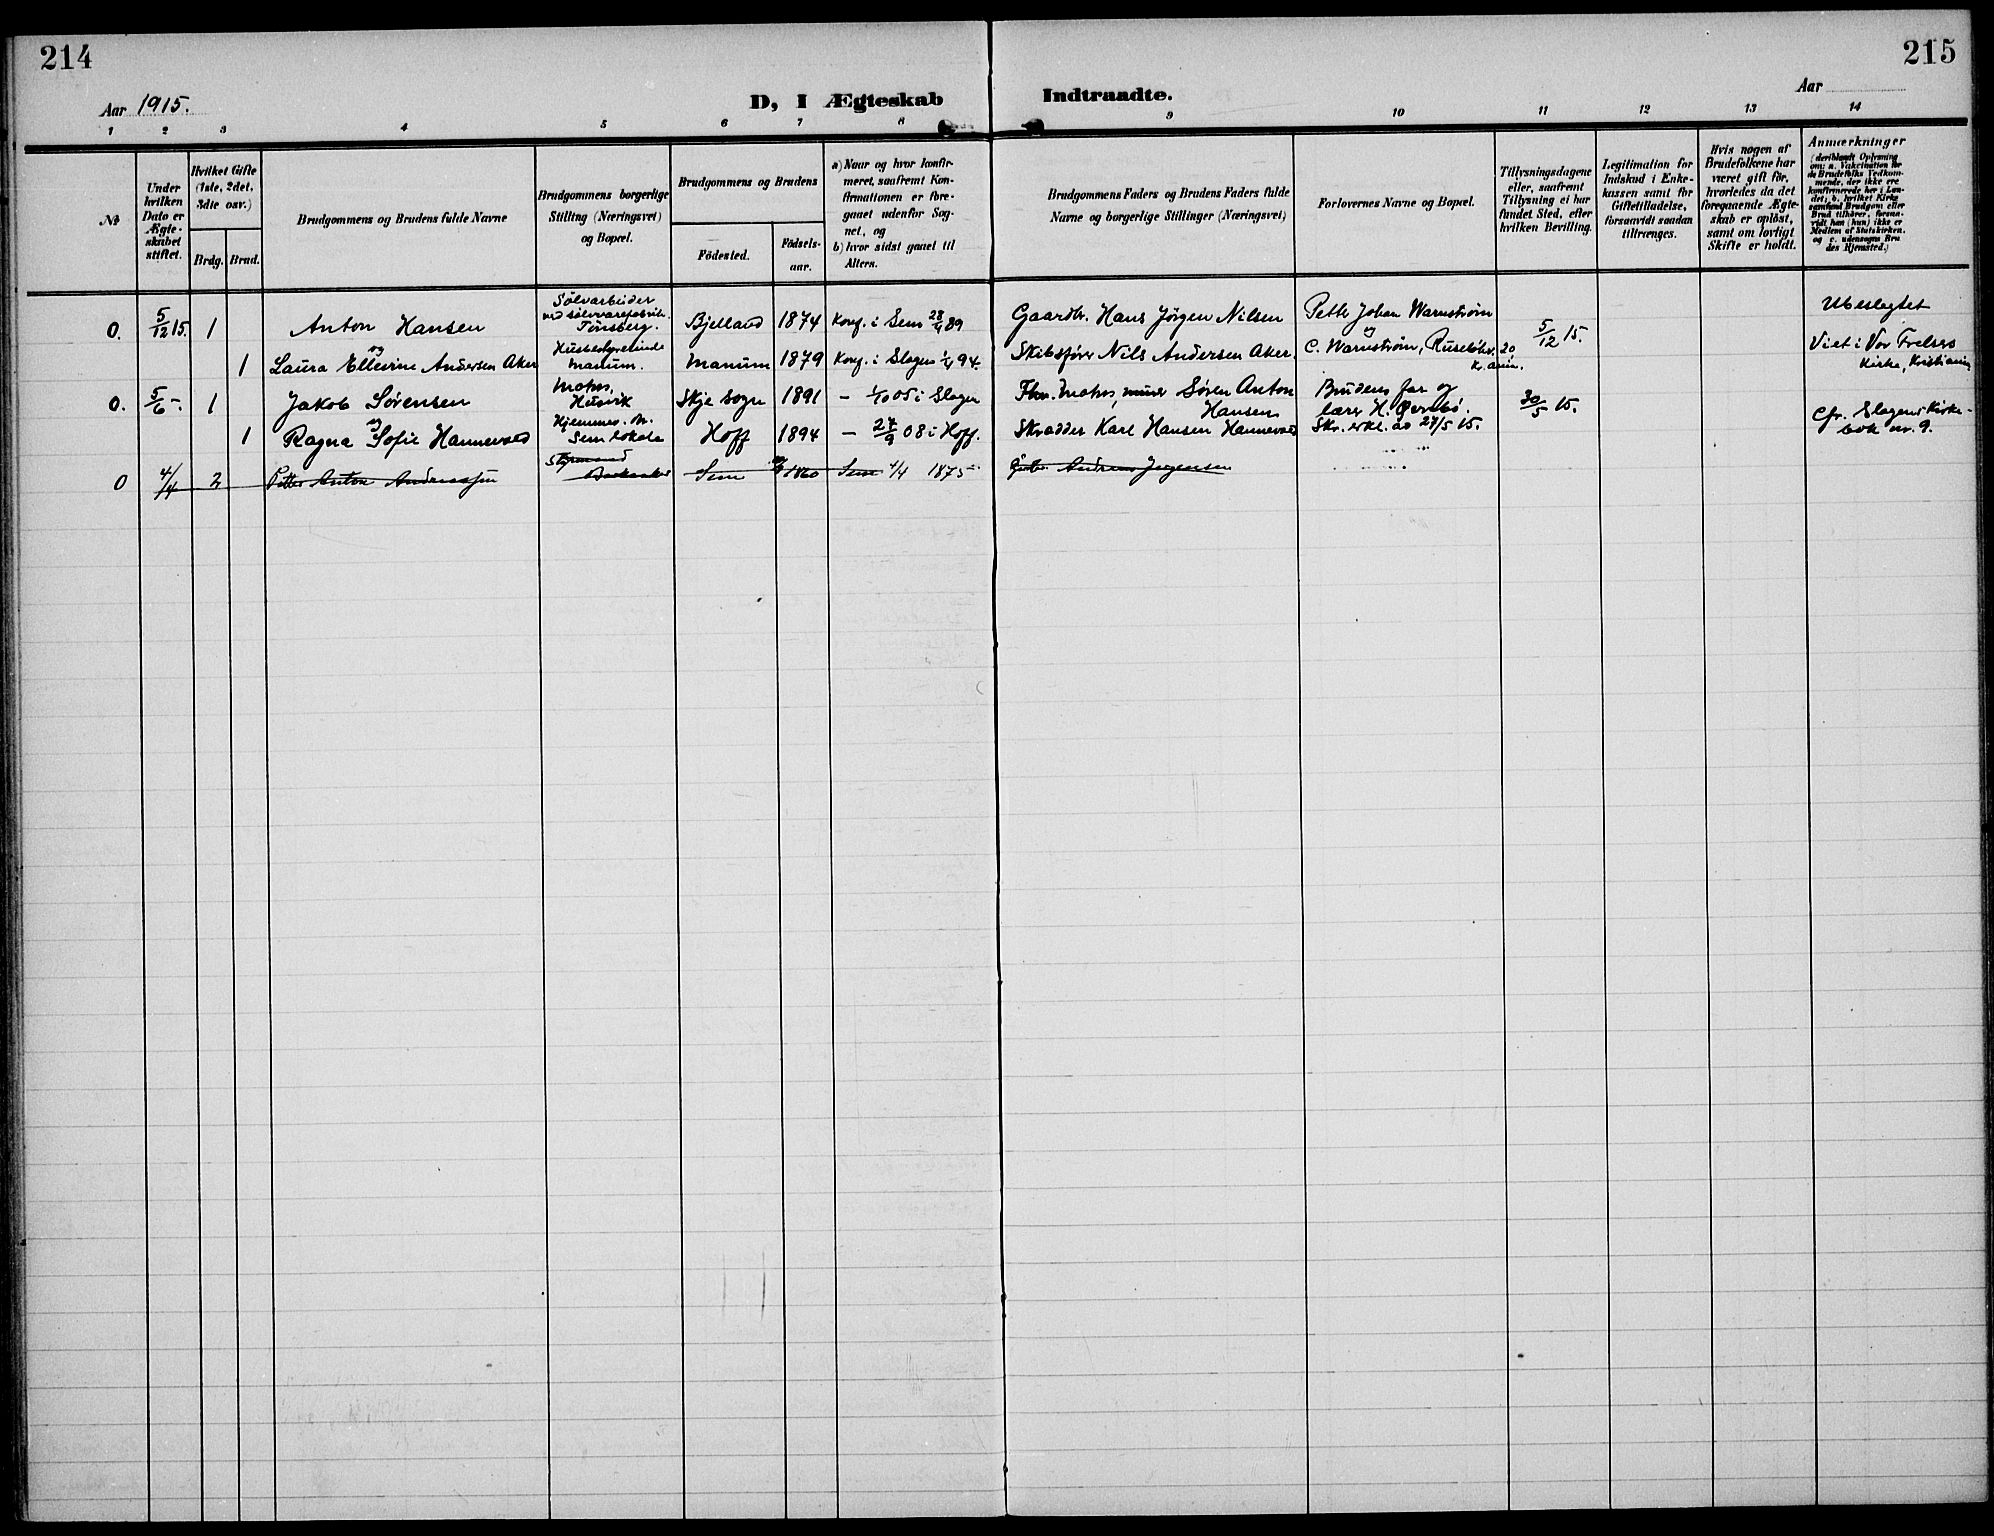 214
215
Aar 1915.
D, I Ægteskab Indtraadte.
Aar
1 2 3 4 5 6 7 8 9 10 11 12 13 14
No
Under hvilken Dato er Ægteskabet stiftet.
Hvilket Gifte (1ste, 2det, 3die osv.)
Brdg. Brud.
Brudgommens og Brudens fulde Navne
Brudgommens borgerlige Stilling (Næringsvei) og Bopæl.
Brudgommens og Brudens
Födested. Födselsaar.
a) Naar og hvor konfirmeret, saafremt Konfirmationen er foregaaet udenfor Sognet, og
b) hvor sidst gaaet til Alters.
Brudgommens Faders og Brudens Faders fulde Navne og borgerlige Stillinger (Næringsvei)
Forlovernes Navne og Bopæl.
Tillysningsdagene eller, saafremt Tillysning ei har fundet Sted, efter hvilken Bevilling.
Legitimation for Indskud i Enkekassen samt for Giftetilladelse, forsaavidt saadan tiltrænges.
Hvis nogen af Brudefolkene har været gift för, hvorledes da det foregaaende Ægteskab er oplöst, samt om lovligt Skifte er holdt.
Anmærkninger
(deriblandt Oplysning om: a. Vakcination for de Brudefolks Vedkommende, der ikke ere konfirmerede her i Landet; b. hvilket Kirkesamfund Brudgom eller Brud tilhörer, forsaavidt han (hun) ikke er Medlem af Statskirken, og c. udensogns Brudes Hjemsted.)
0. 5/12 15. 1 Anton Hansen Sølvarbeider ved sølvvarefabrik. Tønsberg. Bjelland 1874 Konf. i Sem 28/4 89 Gaardbr. Hans Jörgen Nilsen Petter Johan Warnström 5/12 15. Ubeslegtet
og
1 Laura Ellevine Andersen Aker Husbestyrerinde Manum. Manum 1879 Konf. i Slagen 1/4 94. Skibsfører Nils Andersen Aker. og C. Warnström, Ruseløkv. 20 Kr.ania. Viet i Vor Frelsers Kirke, Kristiania
0. 5/6 - 1 Jakob Sørensen Matros, Husvik Skje sogn 1891 - 1/10 05 i Slagen Fhv. matros, murer Søren Anton Hansen Brudens far og 30/5 15. Cfr. Slagens Kirkebok nr. 9.
og
1 Ragna Sofie Hannevold Hjemmev. Sem lokale Hoff 1894 - 27/9 08 i Hoff. Skrædder Karl Hansen Hannevold lærer H. Øverbö. Skr. erkl. av 27/5 15.
0 4/4 2 Petter Anton Andreassen Styrmand Sem 1860 Sem 4/4 1875 Gbr. Andreas Jørgensen